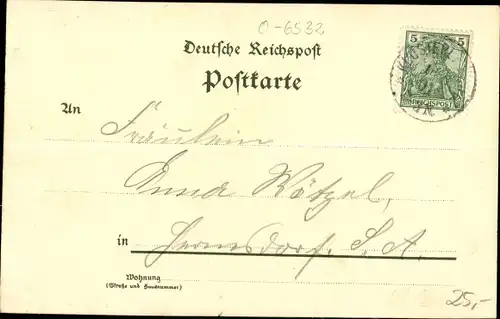 O-6532
Deutsche Reichspost
Postkarte
5 5
REICHSPOST
An
Fräulein
Anna Rötzel,
in Hermsdorf. S. A.
Wohnung
(Straße und Hausnummer)
25,-